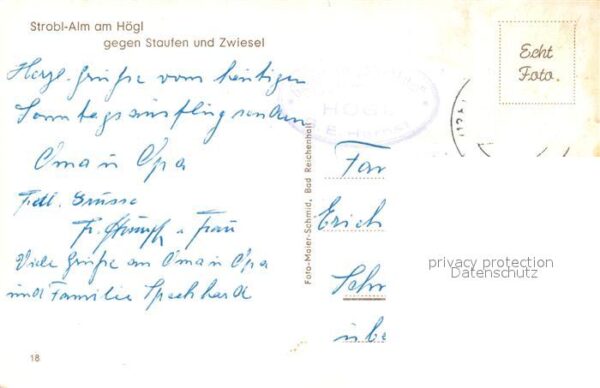 Strobl-Alm am Högl
gegen Staufen und Zwiesel
Echt
Foto.
Herzl. Grüße vom heutigen
Sonntagsausflug senden
Oma u Opa
Frdl. Grüsse
Fr. Stumpf u Frau
Viele Grüße an Oma u Opa
und Familie Speckhard
HÖGL
Foto-Maier-Schmid, Bad Reichenhall
Fam
Erich
Schr
übe
privacy protection
Datenschutz
18